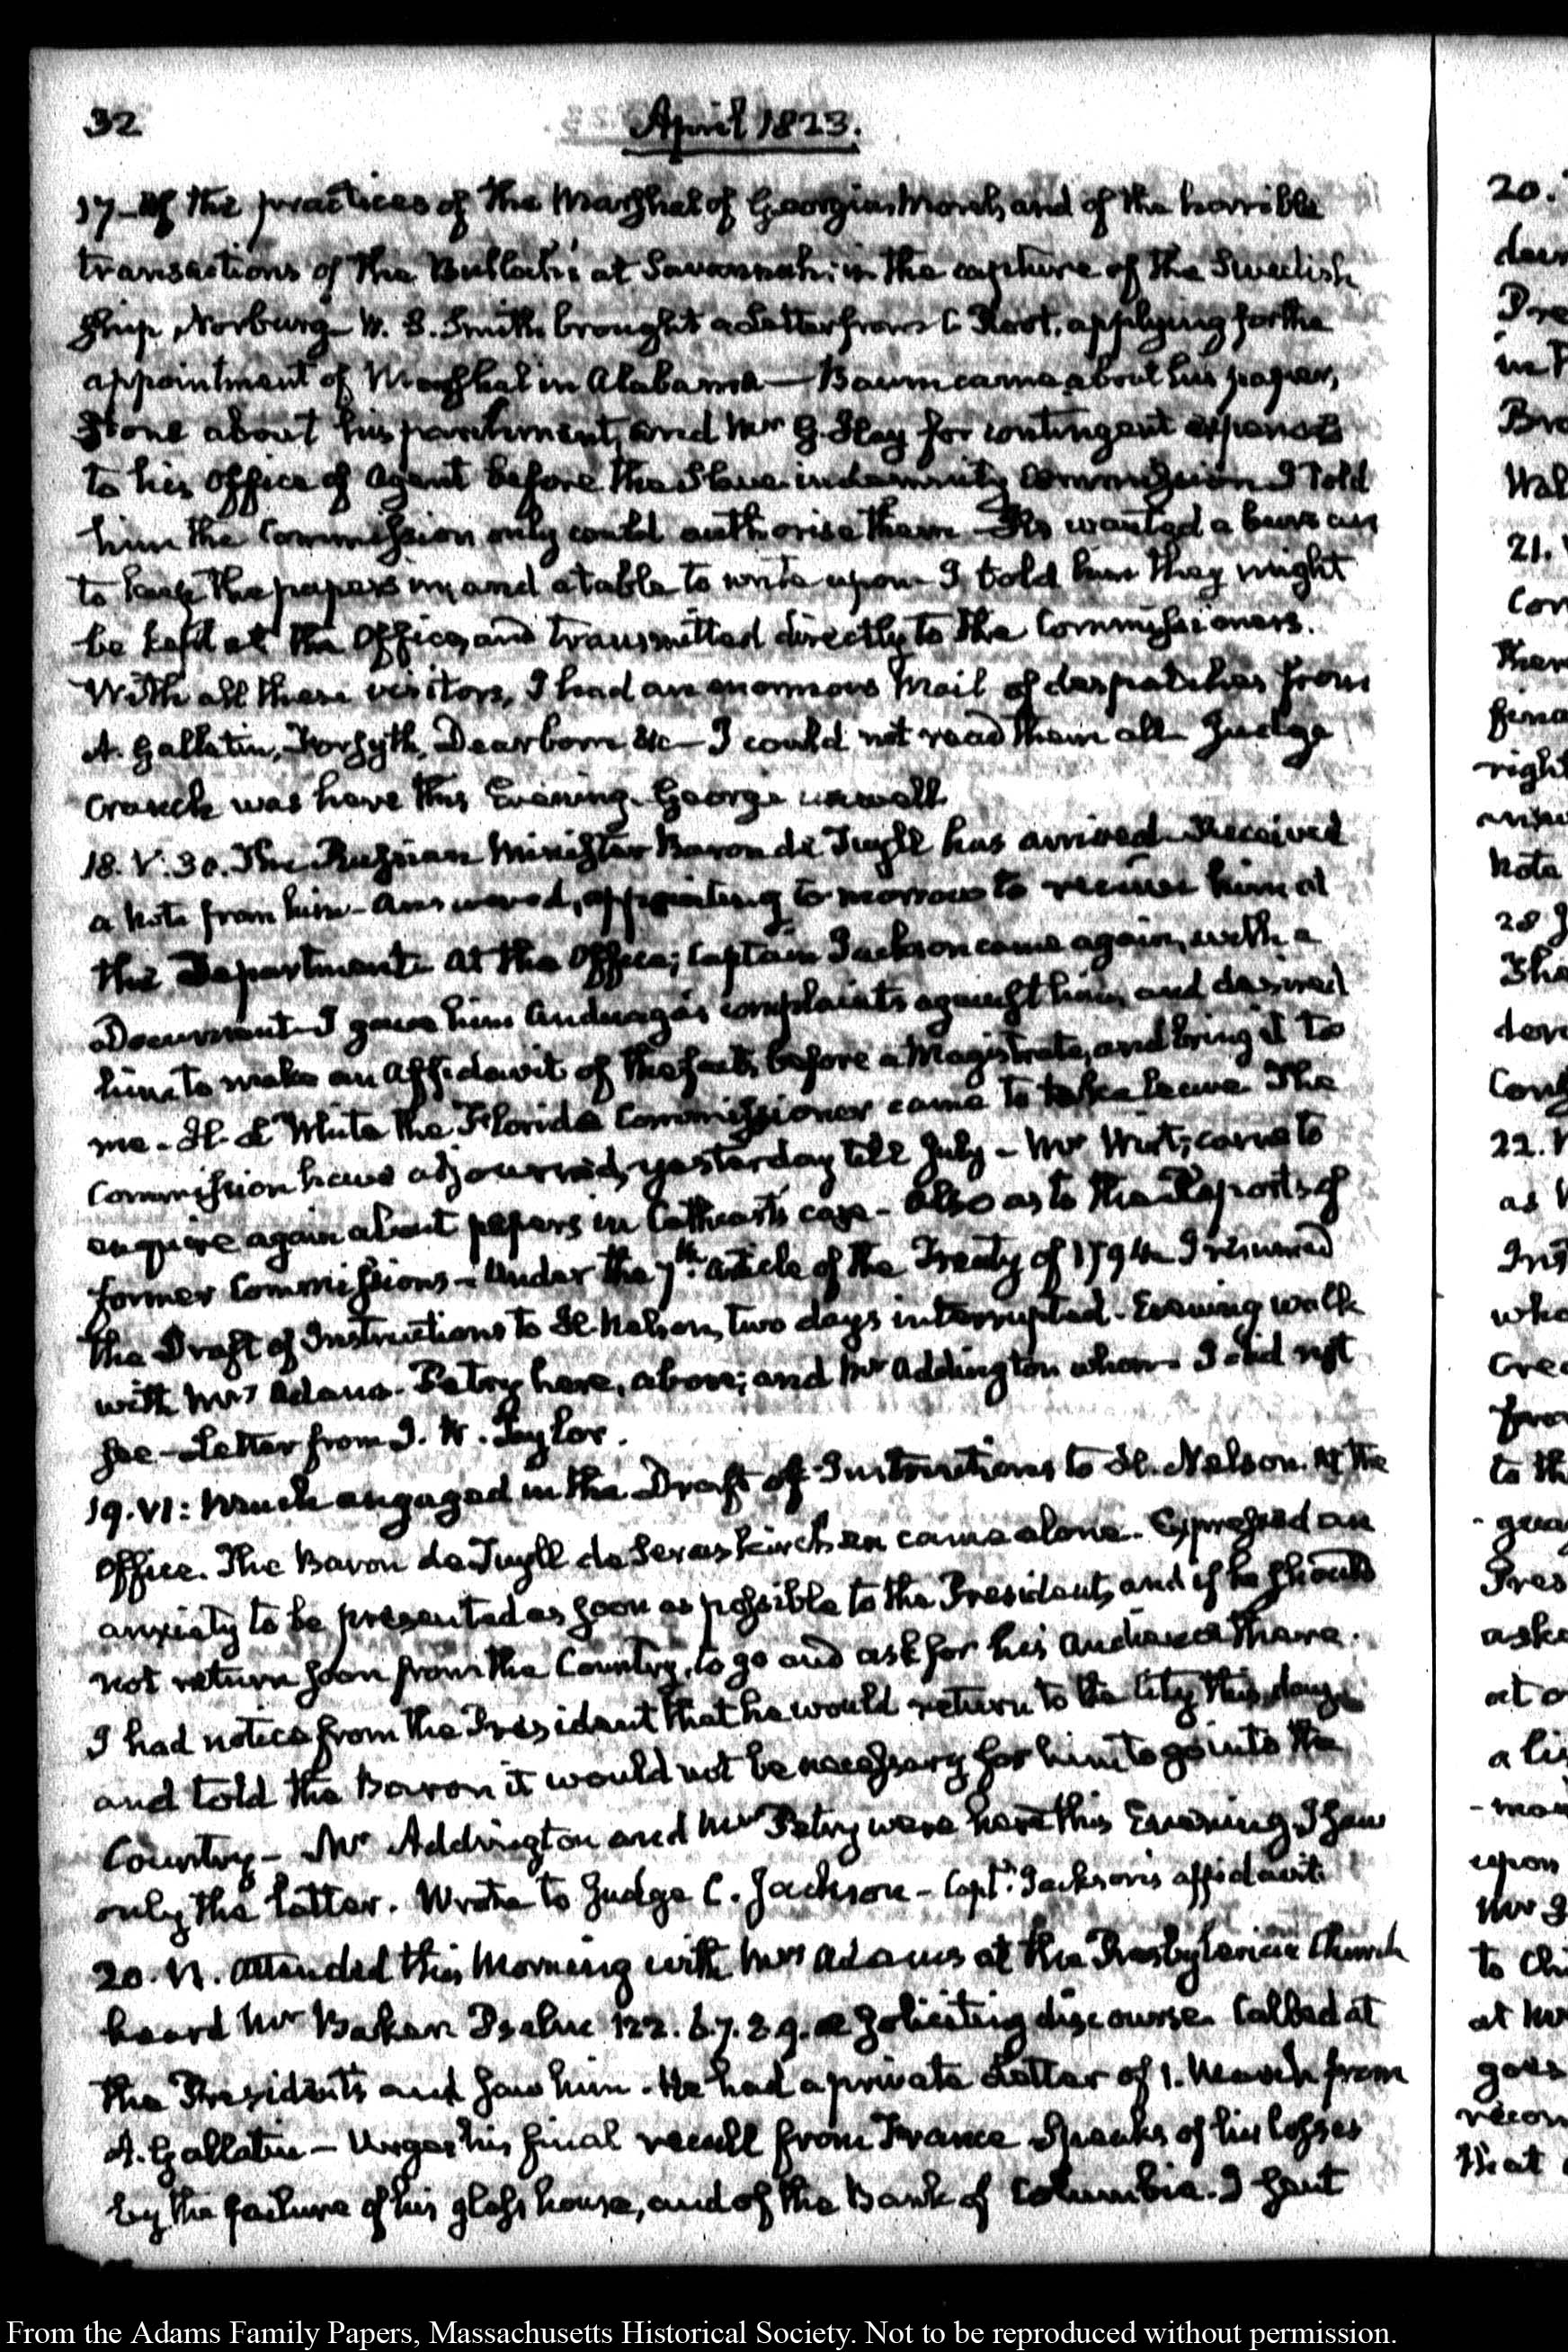 32
April 1823.
17— Of the practices of the Marshal of Georgia Morel, and of the horrible
transactions of the Bulloch's at Savannah; in the capture of the Swedish
Ship Norburg— W. S. Smith brought a Letter from C Root, applying for the
appointment of Marshal in Alabama— Baum came about his paper,
Stone about his parchment, and Mr G. Hay for contingent expenses
to his Office of Agent before the Slave indemnity Commission. I told
him the Commission only could authorise them— He wanted a bureau
to keep the papers in, and a table to write upon— I told him they might
be kept at the Office, and transmitted directly to the Commissioners.
With all these visitors, I had an enormous Mail of despatches from
A. Gallatin, Forsyth, Dearborn &c— I could not read them all— Judge
Cranch was here this Evening. George unwell.
18. V:30. The Russian Minister Baron de Tuyll has arrived. Received
a Note from him— Answered, appointing to morrow to receive him at
the Department. At the Office; Captain Jackson came again, with a
Document— I gave him Anduaga's complaints against him, and desired
him to make an Affidavit of the facts, before a Magistrate, and bring it to
me— White the Florida Commissioner came to take leave. The
Commission have adjourned, yesterday till July— Mr Wirt; came to
enquire again about papers in Cathcart's case— Also as to the Reports of
former Commissions— Under the 7th. article of the Treaty of 1794. I resumed
the Draft of Instructions to H. Nelson, two days interrupted— Evening walk
with Mrs Adams. Petry here, above; and Mr Addington whom I did not
see— Letter from J. W. Taylor.
19. VI: Much engaged in the Draft of Instructions to H. Nelson. At the
Office. The Baron de Tuyll de Seraskirchen came alone. Expressed an
anxiety to be presented as soon as possible to the President, and if he should
not return soon from the Country, to go and ask for his Audience there.
I had notice from the President that he would return to the City this day
and told the Baron it would not be necessary for him to go into the
Country— Mr Addington and Mr Petry were here this Evening. I saw
only the latter. Wrote to Judge C. Jackson— Capt. Jackson's affidavit.
20. Attended this Morning with Mrs Adams at the Presbyterian Church
heard Mr Baker Psalm 122. 6.7.8.9. a discourse. Called at
the Presidents and saw him. He had a private Letter of 1. March from
A. Gallatin— Urges his final recall from France. Speaks of his losses
by the failure of his glass house, and of the Bank of Columbia. I sent
From the Adams Family Papers, Massachusetts Historical Society. Not to be reproduced without permission.